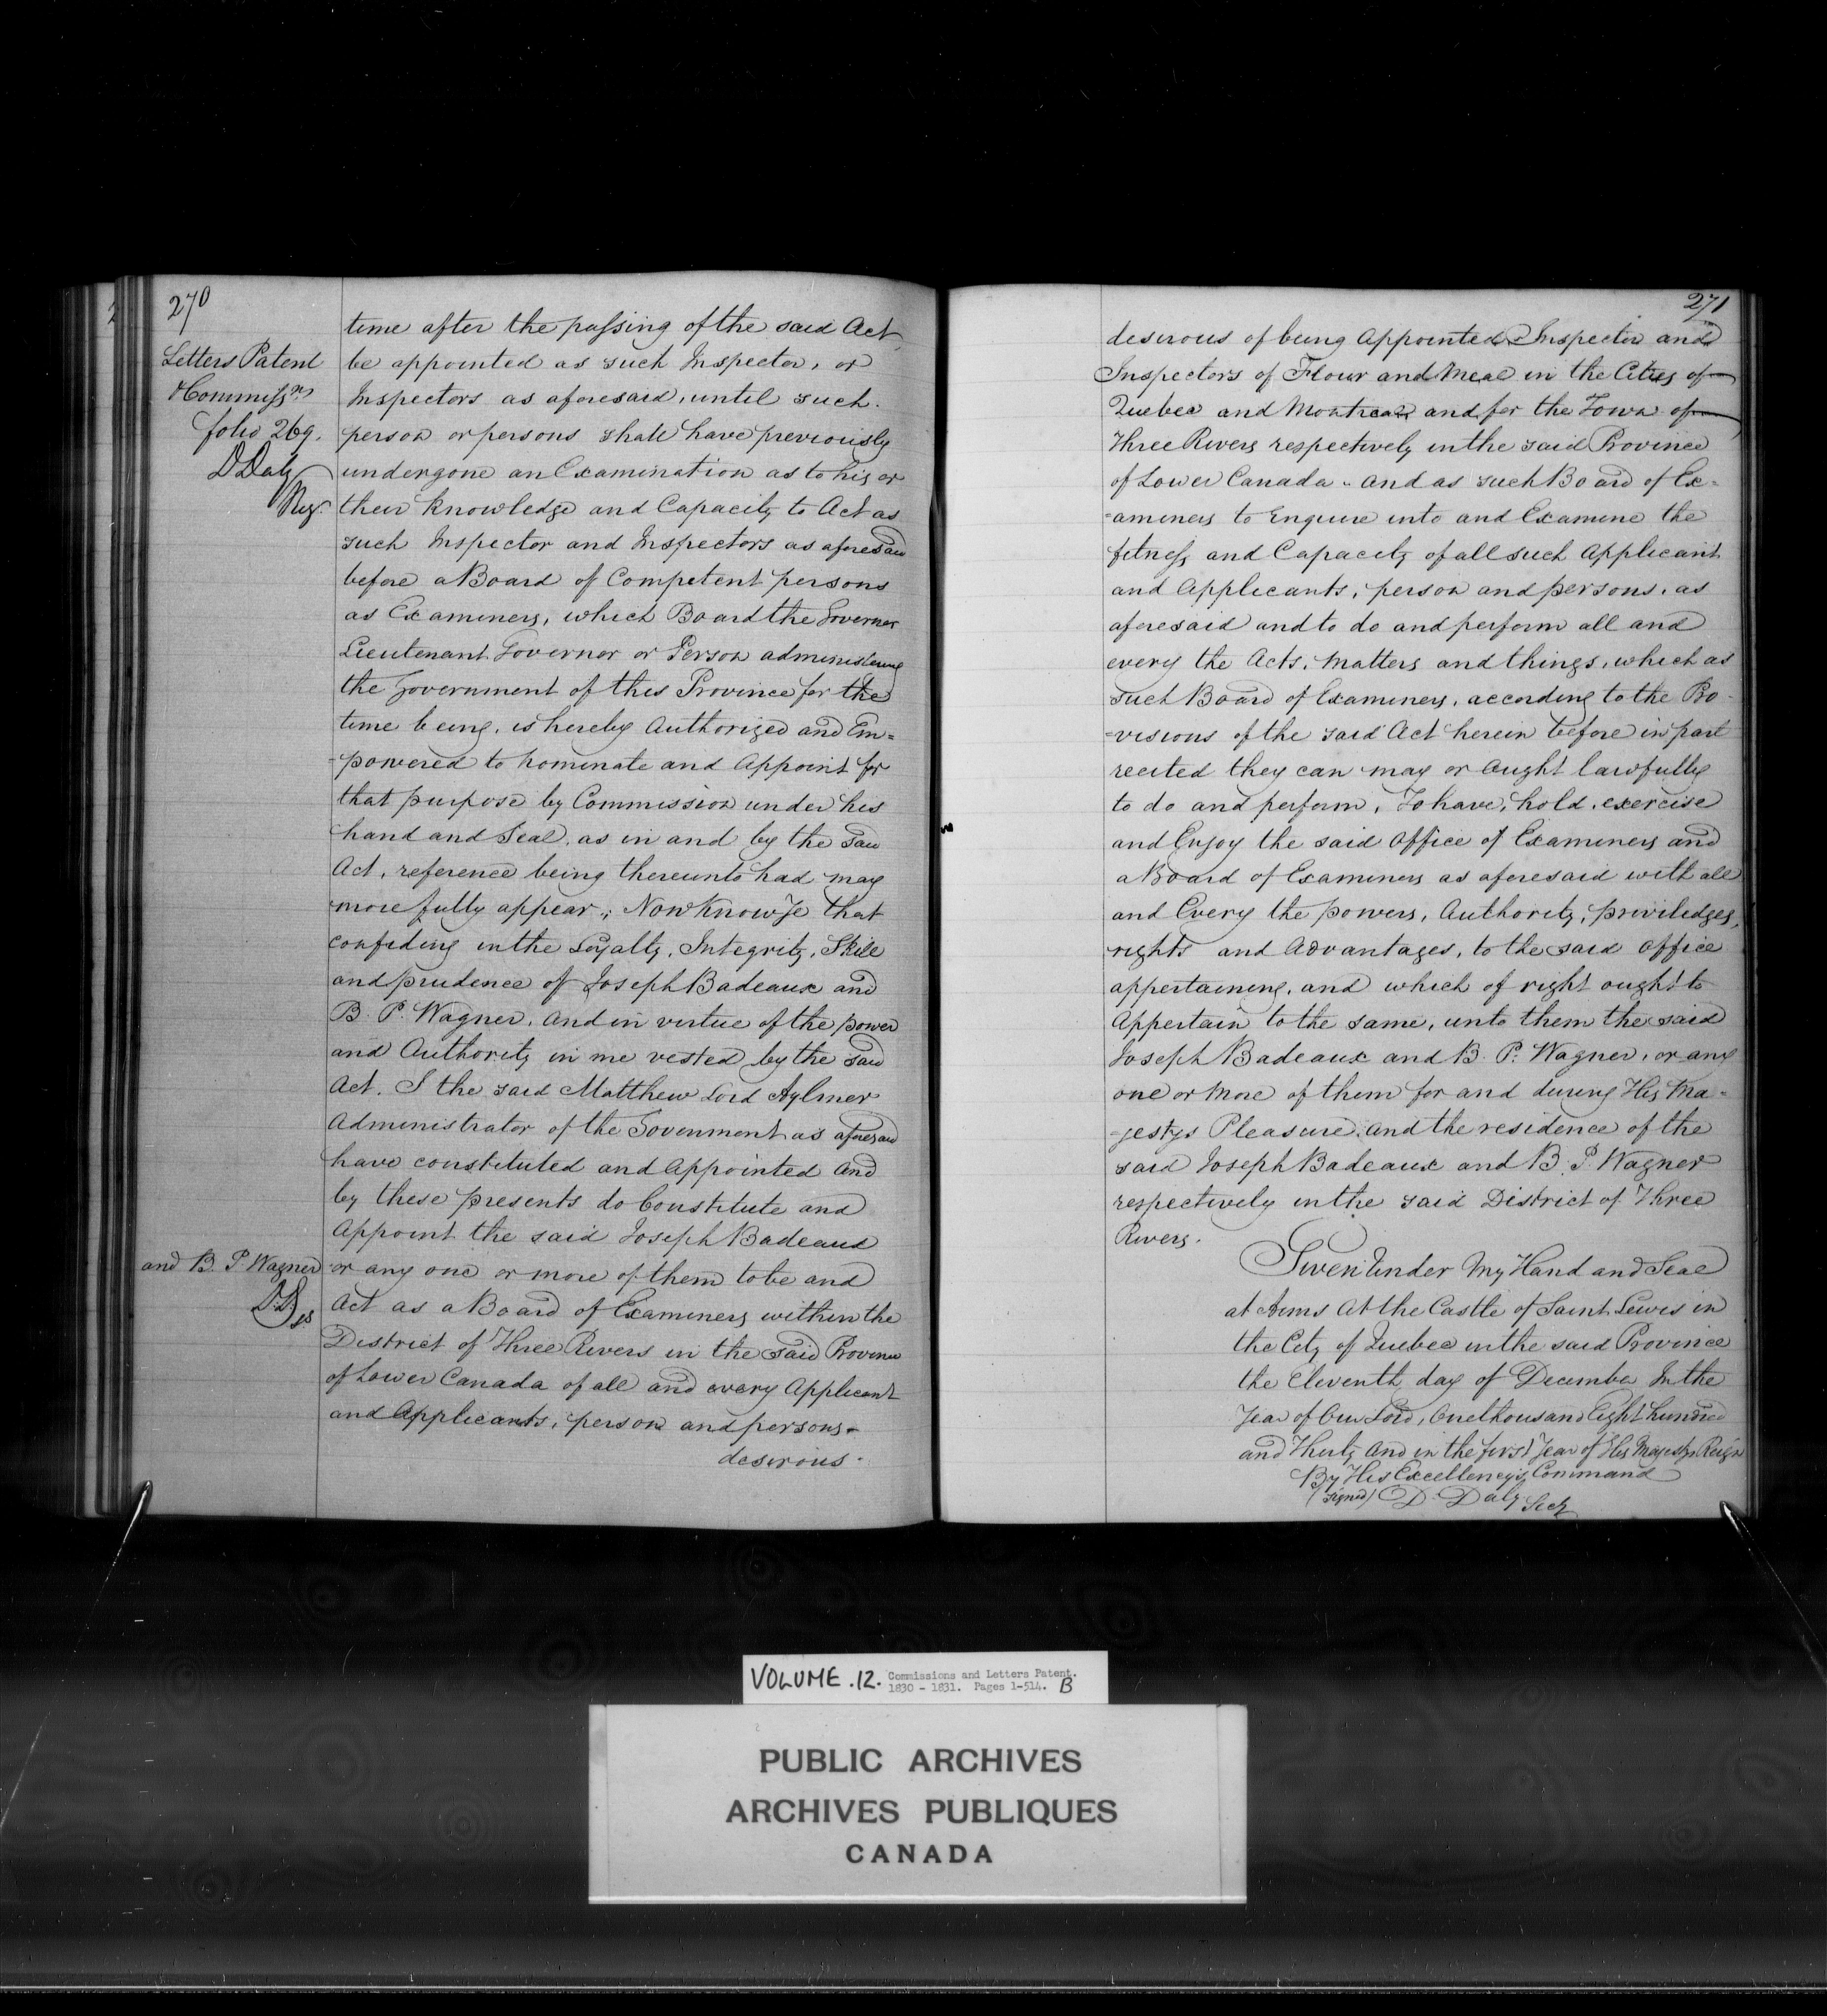 270
Letters Patent
& Commissns
folio 269.
D Daly
Reg.
time after the passing of the said Act
be appointed as such Inspector, or
Inspectors as aforesaid, until such
person or persons shall have previously
undergone an Examination as to his or
their Knowledge and Capacity to Act as
such Inspector and Inspectors as aforesaid
before a Board of Competent persons
as Examiners, which Board the Governor
Lieutenant Governor or Person administering
the Government of this Province for the
time being, is hereby Authorized and Em=
=powered to nominate and Appoint for
that purpose by Commission under his
hand and Seal, as in and by the said
Act, reference being thereunto had may
more fully appear; Now Know Ye that
confiding in the Loyalty, Integrity, Skill
and prudence of Joseph Badeaux and
B. P. Wagner, and in virtue of the power
and Authority in me vested by the said
Act. I the said Matthew Lord Aylmer
Administrator of the Government as aforesaid
have constituted and Appointed and
by these presents do Constitute and
Appoint the said Joseph Badeaux
and B. P. Wagner
or any one or more of them to be and
Act as a Board of Examiners within the
District of Three Rivers in the said Province
of Lower Canada of all and every Applicant
and Applicants, person and persons
desirous.
271
desirous of being Appointed Inspector and
Inspectors of Flour and Meal in the Cities of
Quebec and Montreal and for the Town of
Three Rivers respectively in the said Province
of Lower Canada. And as such Board of Ex=
=aminers to Enquire into and Examine the
fitness and Capacity of all such Applicant
and Applicants, person and persons, as
aforesaid and to do and perform all and
every the Acts, Matters and things, which as
such Board of Examiners, according to the Pro
=visions of the said Act herein before in part
recited they can may or Aught lawfully
to do and perform, To have, hold, exercise
and Enjoy the said Office of Examiners and
a Board of Examiners as aforesaid with all
and Every the powers, Authority, priviledges,
rights and Advantages, to the said Office
appertaining, and which of right ought to
Appertain to the same, unto them the said
Joseph Badeaux and B. P. Wagner, or any
one or more of them for and during His Ma=
=jestys Pleasure, and the residence of the
said Joseph Badeaux and B. P. Wagner
respectively in the said District of Three
Rivers.
Given Under My Hand and Seal
at Arms At the Castle of Saint Lewis in
the City of Quebec in the said Province
the Eleventh day of December In the
Year of Our Lord, One thousand Eight hundred
and Thirty And in the first Year of His Majestys Reign
By His Excellency's Command
(signed) D. Daly Secy
VOLUME. 12. Commissions and Letters Patent.
1830 - 1831. Pages 1-514. B
PUBLIC ARCHIVES
ARCHIVES PUBLIQUES
CANADA